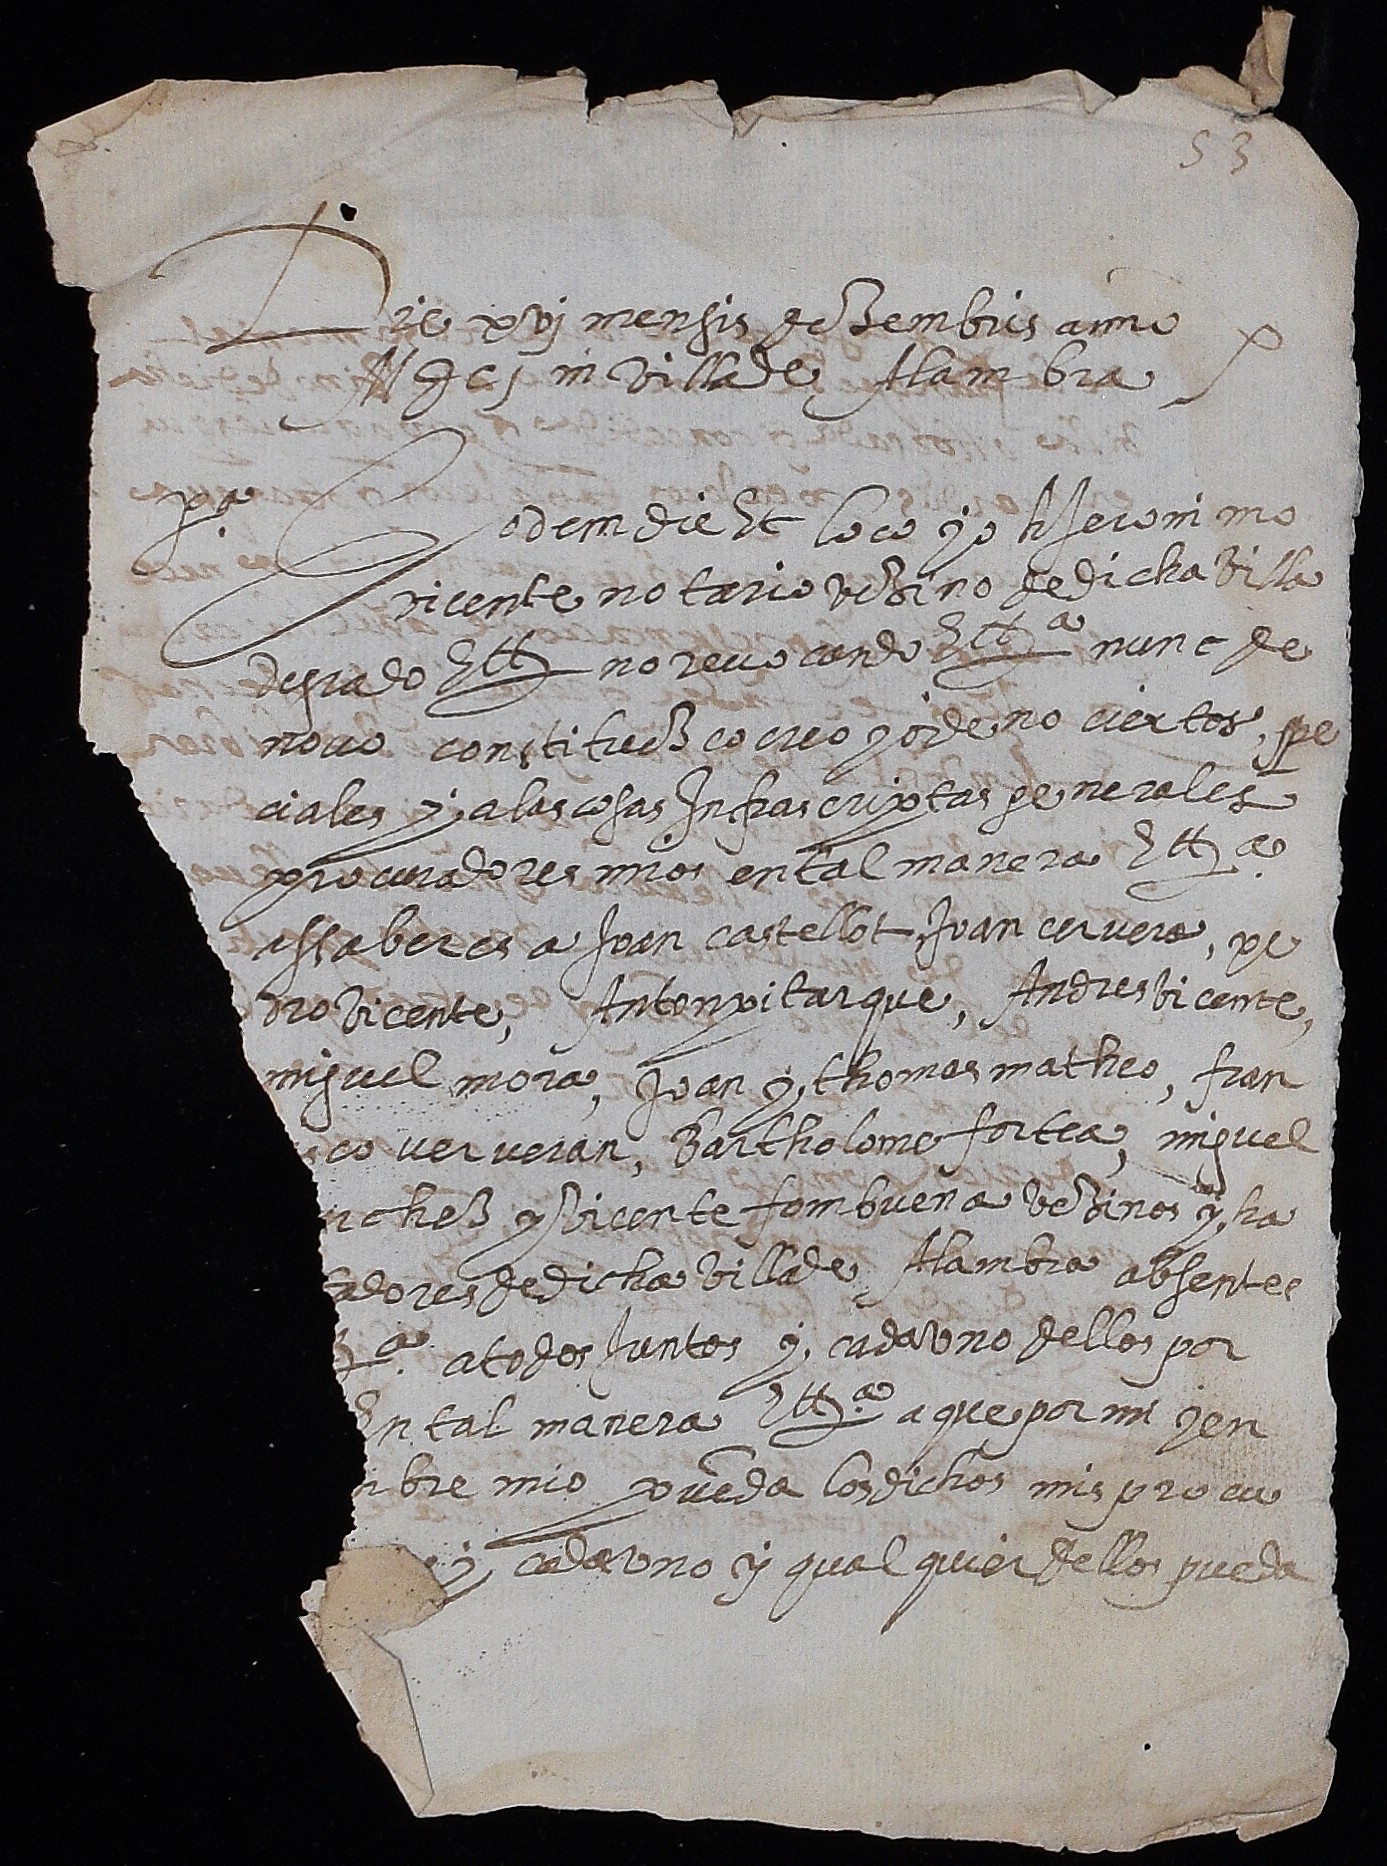 53
Die xvj mensis dezembris anno
M D C j in villa de Alambra
pa
Eodem die Et loco yo hieronimo
vicente notario vezino de dicha villa
de grado Ett no reuocando Ettª nunc de
nouo constituezco creo y ordeno ciertos, spe
ciales y a las cosas Infrascriptas generales
procuradores mios en tal manera Ettª
assaber es a Joan castellot, Joan ceruera, pe
dro vicente, Anton pitarque, Andres vicente,
miguel mora, Joan y thomas matheo, fran
co verueran, Bartholome fortea, miguel
nchez y vicente fombuena vezinos y ha
adores de dicha villa de Alambra absentes
ª a todos Juntos y cada uno dellos por
En tal manera Ettª a que por mi y en
bre mio pueda los dichos mis procu
y cada uno y qual quier dellos pueda